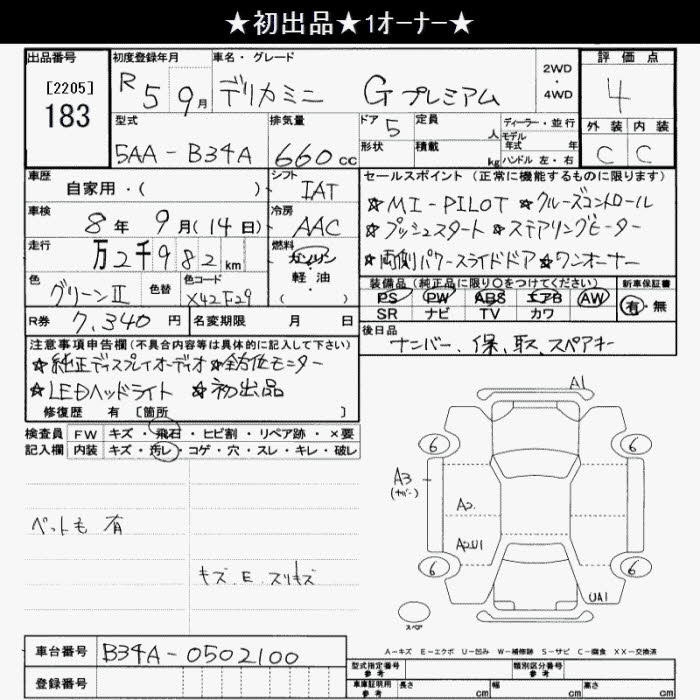 ★初出品★1オーナー★
出品番号
[2205]
183
初度登録年月
R 5 9月
車名・グレード
デリカミニ Gプレミアム
2WD
・
4WD
評価点
4
外装 内装
C C
型式
5AA-B34A
排気量
660cc
ドア 5
定員 人
形状
積載 kg
ディーラー・並行
モデル
年式 年
ハンドル 左・右
車歴
自家用・( )
シフト
IAT
車検
8年 9月(14日)
冷房
AAC
走行
万2千982km
燃料
ガソリン
・
軽・油
( )
色
グリーンⅡ
色替
色コード
X42F29
R券 7,340円
名変期限 月 日
セールスポイント(正常に機能するものに限ります)
☆MI-PILOT ☆クルーズコントロール
☆プッシュスタート ☆ステアリングヒーター
☆両側パワースライドドア ☆ワンオーナー
装備品(純正品に限り○をつけてください)
PS PW ABS エアB AW
SR ナビ TV カワ
新車保証書
有・無
後日品
ナンバー、保、取、スペアキー
注意事項申告欄(不具合内容等は具体的に記入して下さい)
☆純正ディスプレイオーディオ ☆全方位モニター
☆LEDヘッドライト ☆初出品
修復歴 有 [箇所 ]
検査員
記入欄
FW キズ・飛石・ヒビ割・リペア跡・×要
内装 キズ・汚レ・コゲ・穴・スレ・キレ・破レ
ペットも 有
キズ E スリキズ
A1
6 6
A3
(ナンバー)
A2
A2U1
6 6
UA1
スペア
A-キズ E-エクボ U-凹み W-補修跡 S-サビ C-腐食 XX-交換済
車台番号 B34A-0502100
登録番号
型式指定番号
参考
類別区分番号
参考
車庫証明用
参考
長さ cm 幅 cm 高さ cm